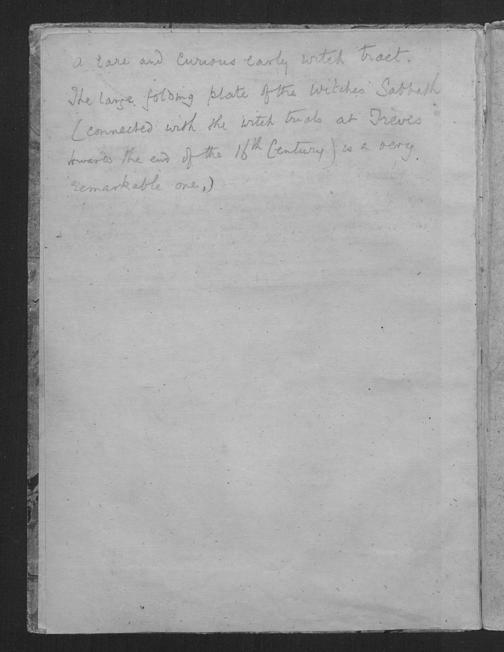 A rare and curious early witch tract.
The large folding plate of the Witches' Sabbath
(connected with the witch trials at Treves
towards the end of the 16th Century) is a very
remarkable one.)